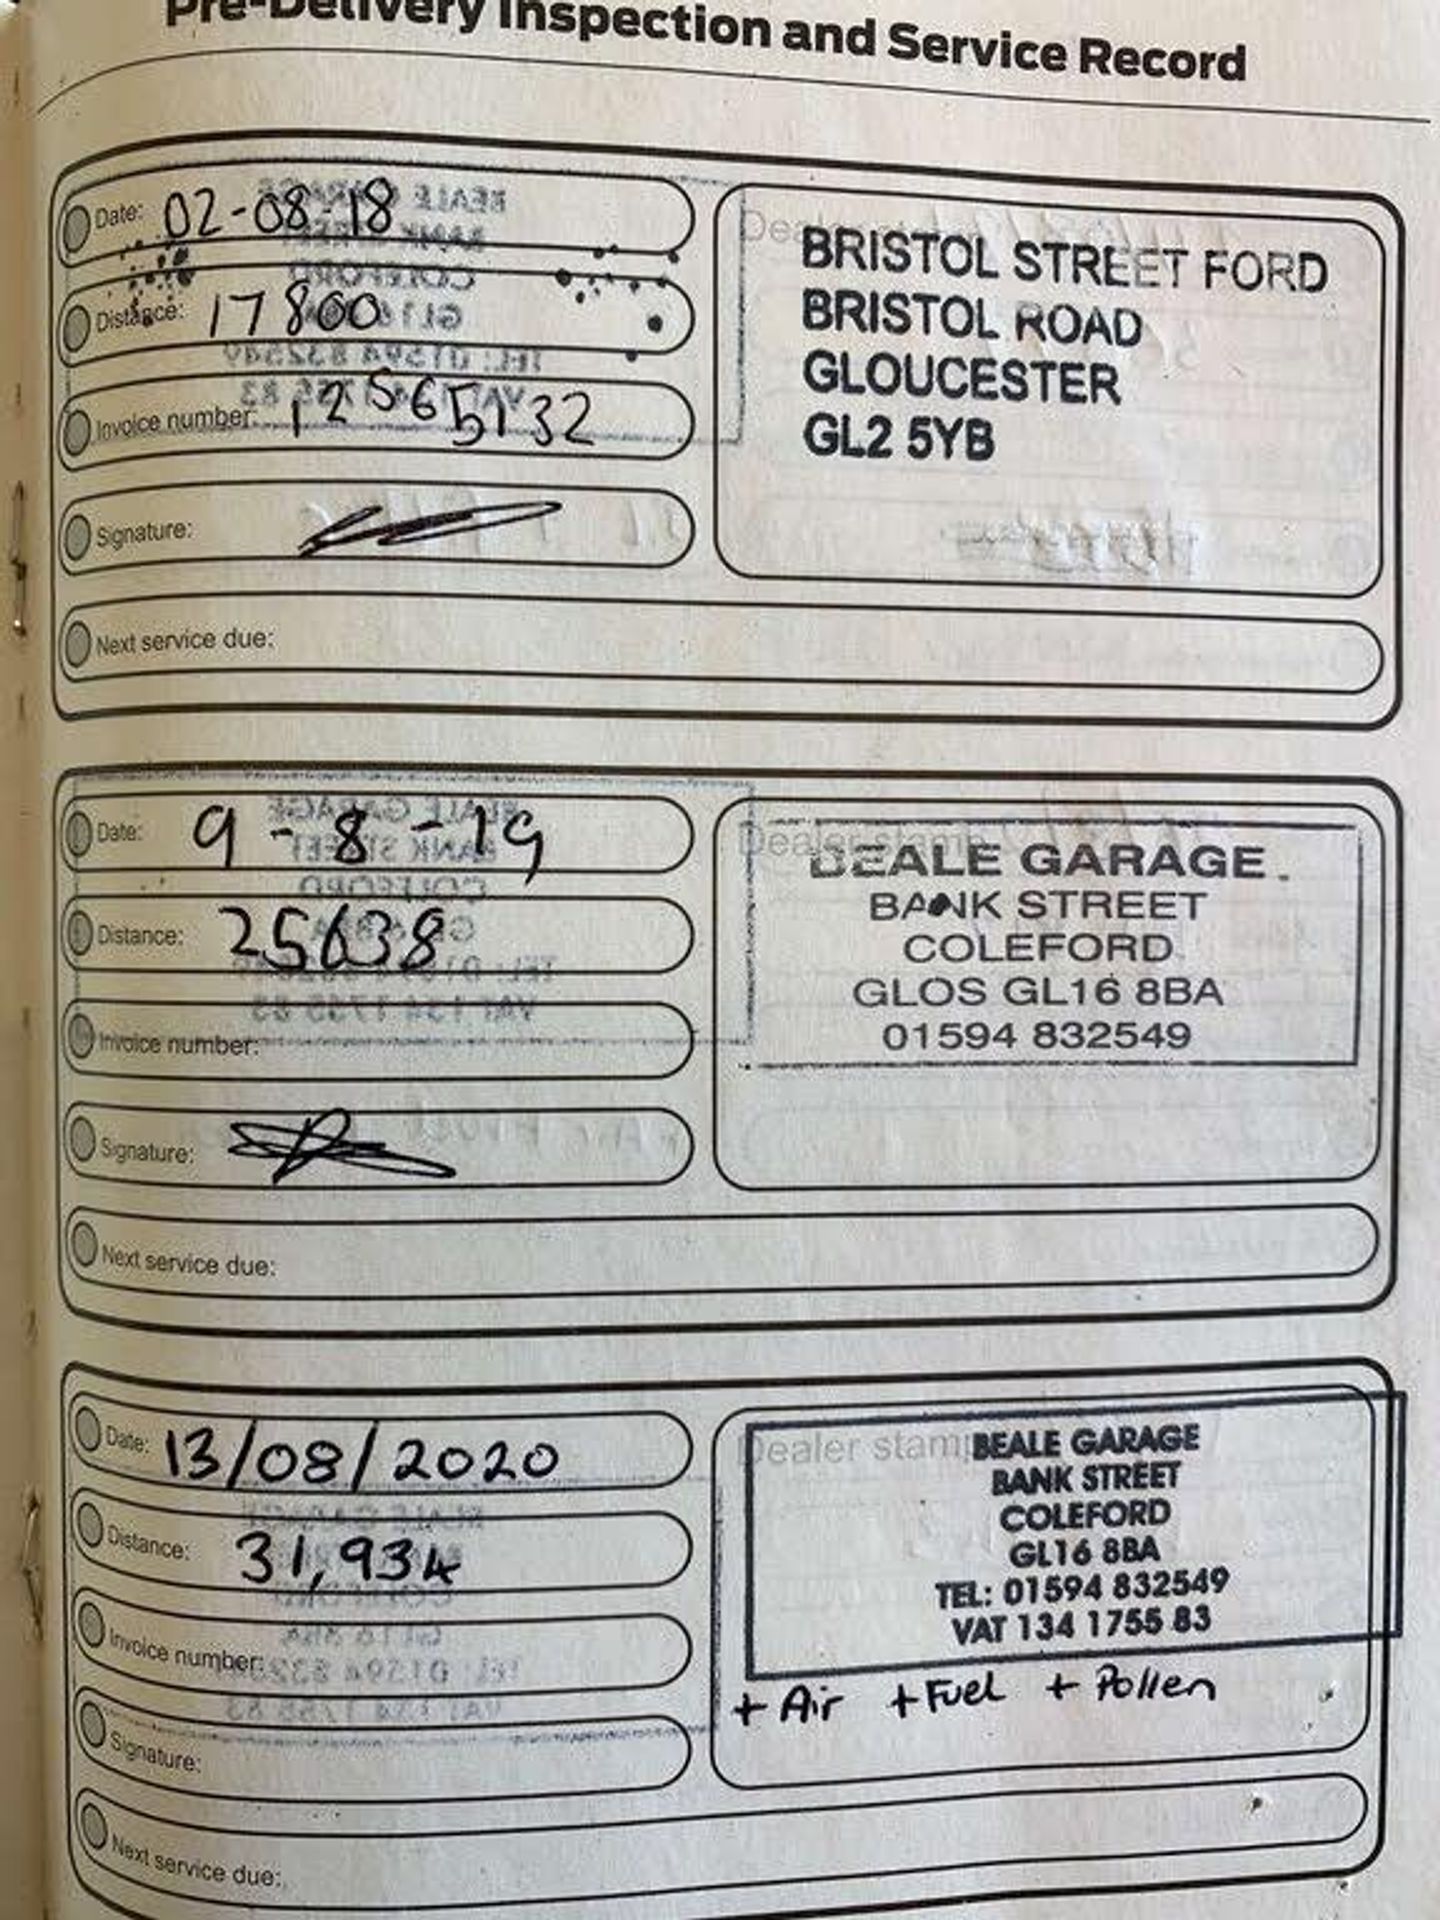 Pre-Delivery Inspection and Service Record
Date: 02-08-18
Distance: 17800
Invoice number: 12565132
Signature:
Next service due:
Dealer stamp
BRISTOL STREET FORD
BRISTOL ROAD
GLOUCESTER
GL2 5YB
Date: 9-8-19
Distance: 25638
Invoice number:
Signature:
Next service due:
Dealer stamp
BEALE GARAGE
BANK STREET
COLEFORD
GLOS GL16 8BA
01594 832549
Date: 13/08/2020
Distance: 31,934
Invoice number:
Signature:
Next service due:
Dealer stamp
BEALE GARAGE
BANK STREET
COLEFORD
GL16 8BA
TEL: 01594 832549
VAT 134 1755 83
+ Air + Fuel + Pollen